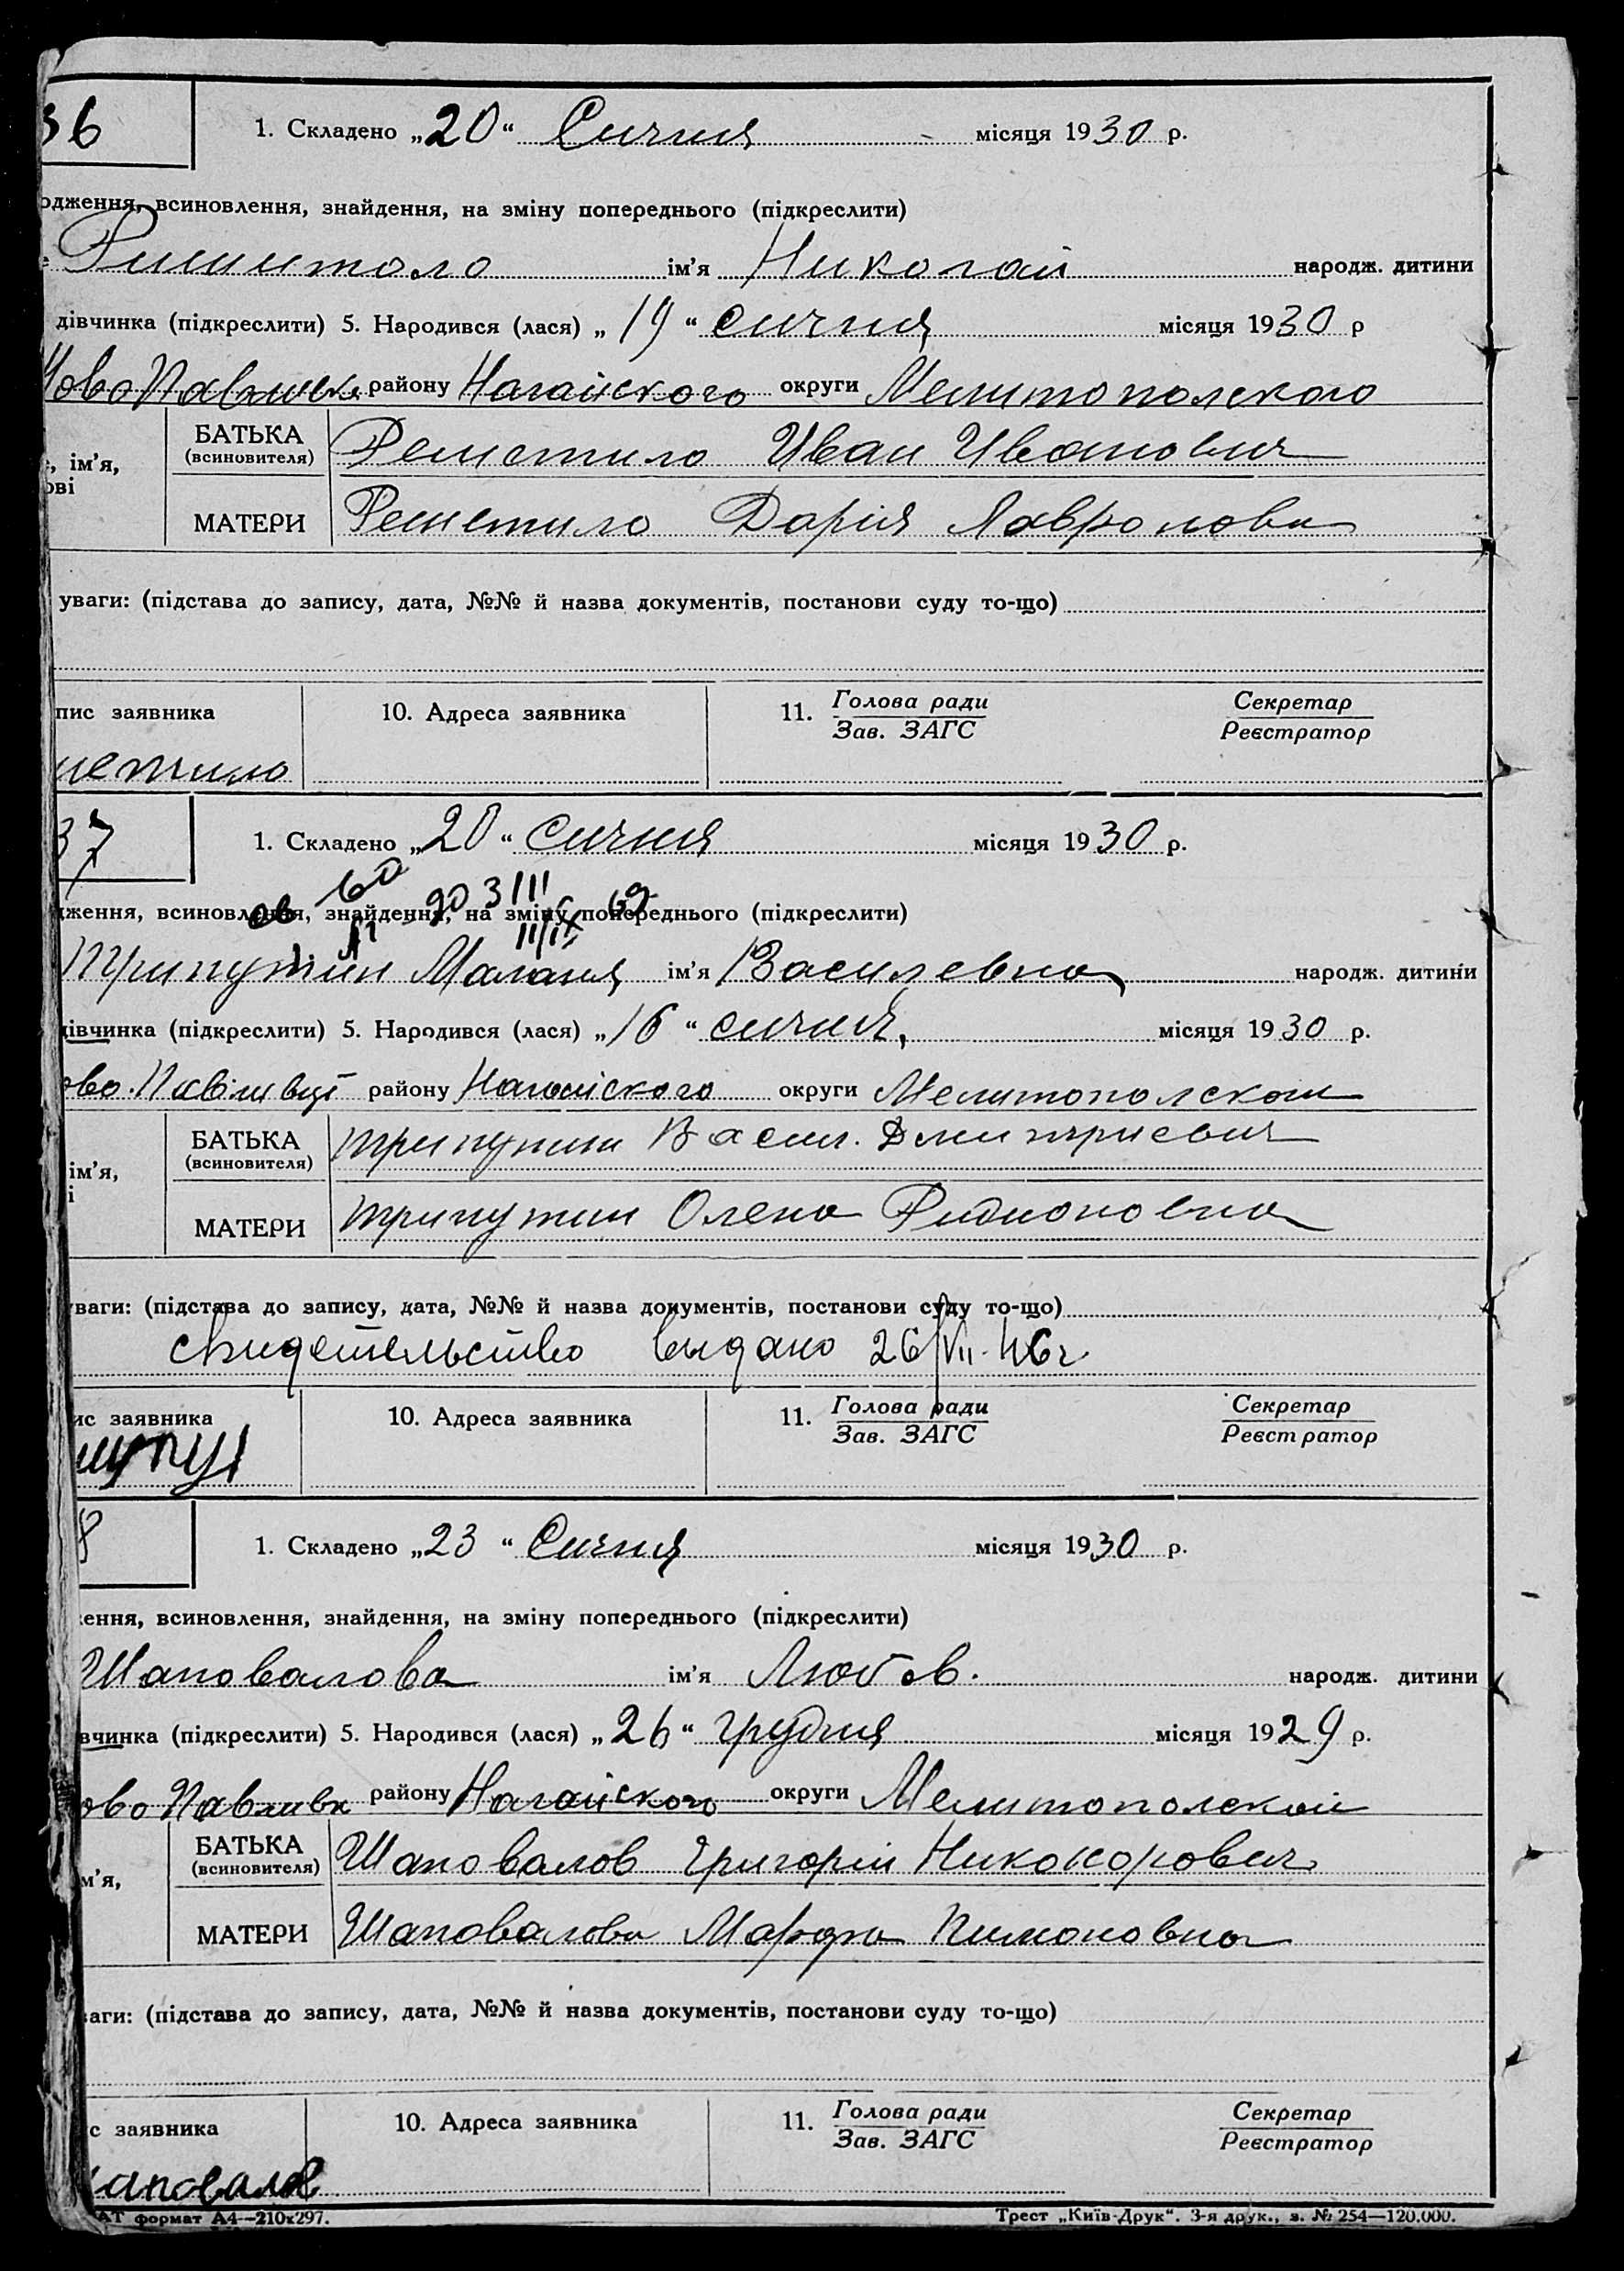 36
1. Складено „20“ Сичня місяця 1930 р.
одження, всиновлення, знайдення, на зміну попереднього (підкреслити)
ім'я Николай народж. дитини
дівчинка (підкреслити) 5. Народився (лася) „19“ сичня місяця 1930 р
району Нагайского округи Мелитополского
БАТЬКА
(всиновителя) Решетило Иван Иванович
, ім'я,
ові
МАТЕРИ Решетило Дарія
уваги: (підстава до запису, дата, №№ й назва документів, постанови суду то-що)
пис заявника 10. Адреса заявника 11. Голова ради Секретар
Зав. ЗАГС Реєстратор
шетило
37
1. Складено „20“ сичня місяця 1930 р.
дження, всиновлення, знайдення, на зміну попереднього (підкреслити)
Трипутин Маланя ім'я Василевна народж. дитини
дівчинка (підкреслити) 5. Народився (лася) „16“ сичня, місяця 1930 р.
ово-Павливці району Нагайского округи Мелитополскои
БАТЬКА
(всиновителя) Трипутин Васил. Дмитриевич
ім'я,
і
МАТЕРИ Трипутин Олена Родионовна
уваги: (підстава до запису, дата, №№ й назва документів, постанови суду то-що)
свидетельство выдано 26/VII-46г
ис заявника 10. Адреса заявника 11. Голова ради Секретар
Зав. ЗАГС Реєстратор
8
1. Складено „23“ Сичня місяця 1930 р.
ення, всиновлення, знайдення, на зміну попереднього (підкреслити)
Шаповалова ім'я Любов. народж. дитини
вчинка (підкреслити) 5. Народився (лася) „26“ грудня місяця 1929 р.
ово Павливк району Нагайского округи Мелитополской
БАТЬКА
(всиновителя) Шаповалов Григорій Никонорович
м'я,
МАТЕРИ Шаповалова Марфа Пимоновна
ваги: (підстава до запису, дата, №№ й назва документів, постанови суду то-що)
с заявника 10. Адреса заявника 11. Голова ради Секретар
Зав. ЗАГС Реєстратор
аповалов
АТ формат А4—210х297. Трест „Київ-Друк“. 3-я друк., з. № 254—120.000.